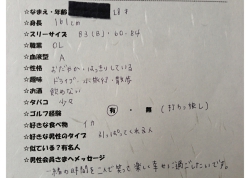 ☆なまえ・年齢 28才
☆身長 161cm
☆スリーサイズ 83(B)・60・84
☆職業 OL
☆血液型 A
☆性格 おだやか・はっきりしている
☆趣味 ドライブ・散歩
☆お酒 飲めない
☆タバコ 少々
☆ゴルフ経験 有・無
☆好きな食べ物 イカ
☆好きな男性のタイプ 引っぱってくれる人
☆似ている?有名人
☆男性会員さまへメッセージ
一緒の時間をこんで笑って楽しい幸せに過ごしたいです。